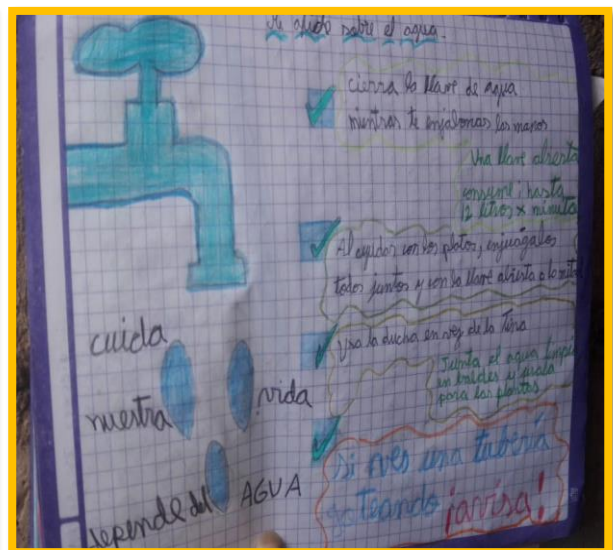 sobre el agua.
cierra la llave de agua
mientras te enjabonas las manos
Una llave abierta
consume hasta
12 litros x minuto
Al ayudar con los platos, enjuágalos
todos juntos y con la llave abierta a la mitad
Usa la ducha en vez de la Tina
Junta el agua limpia
en baldes y usala
para las plantas
Si ves una tubería
goteando ¡avisa!
cuida
nuestra vida
depende del AGUA